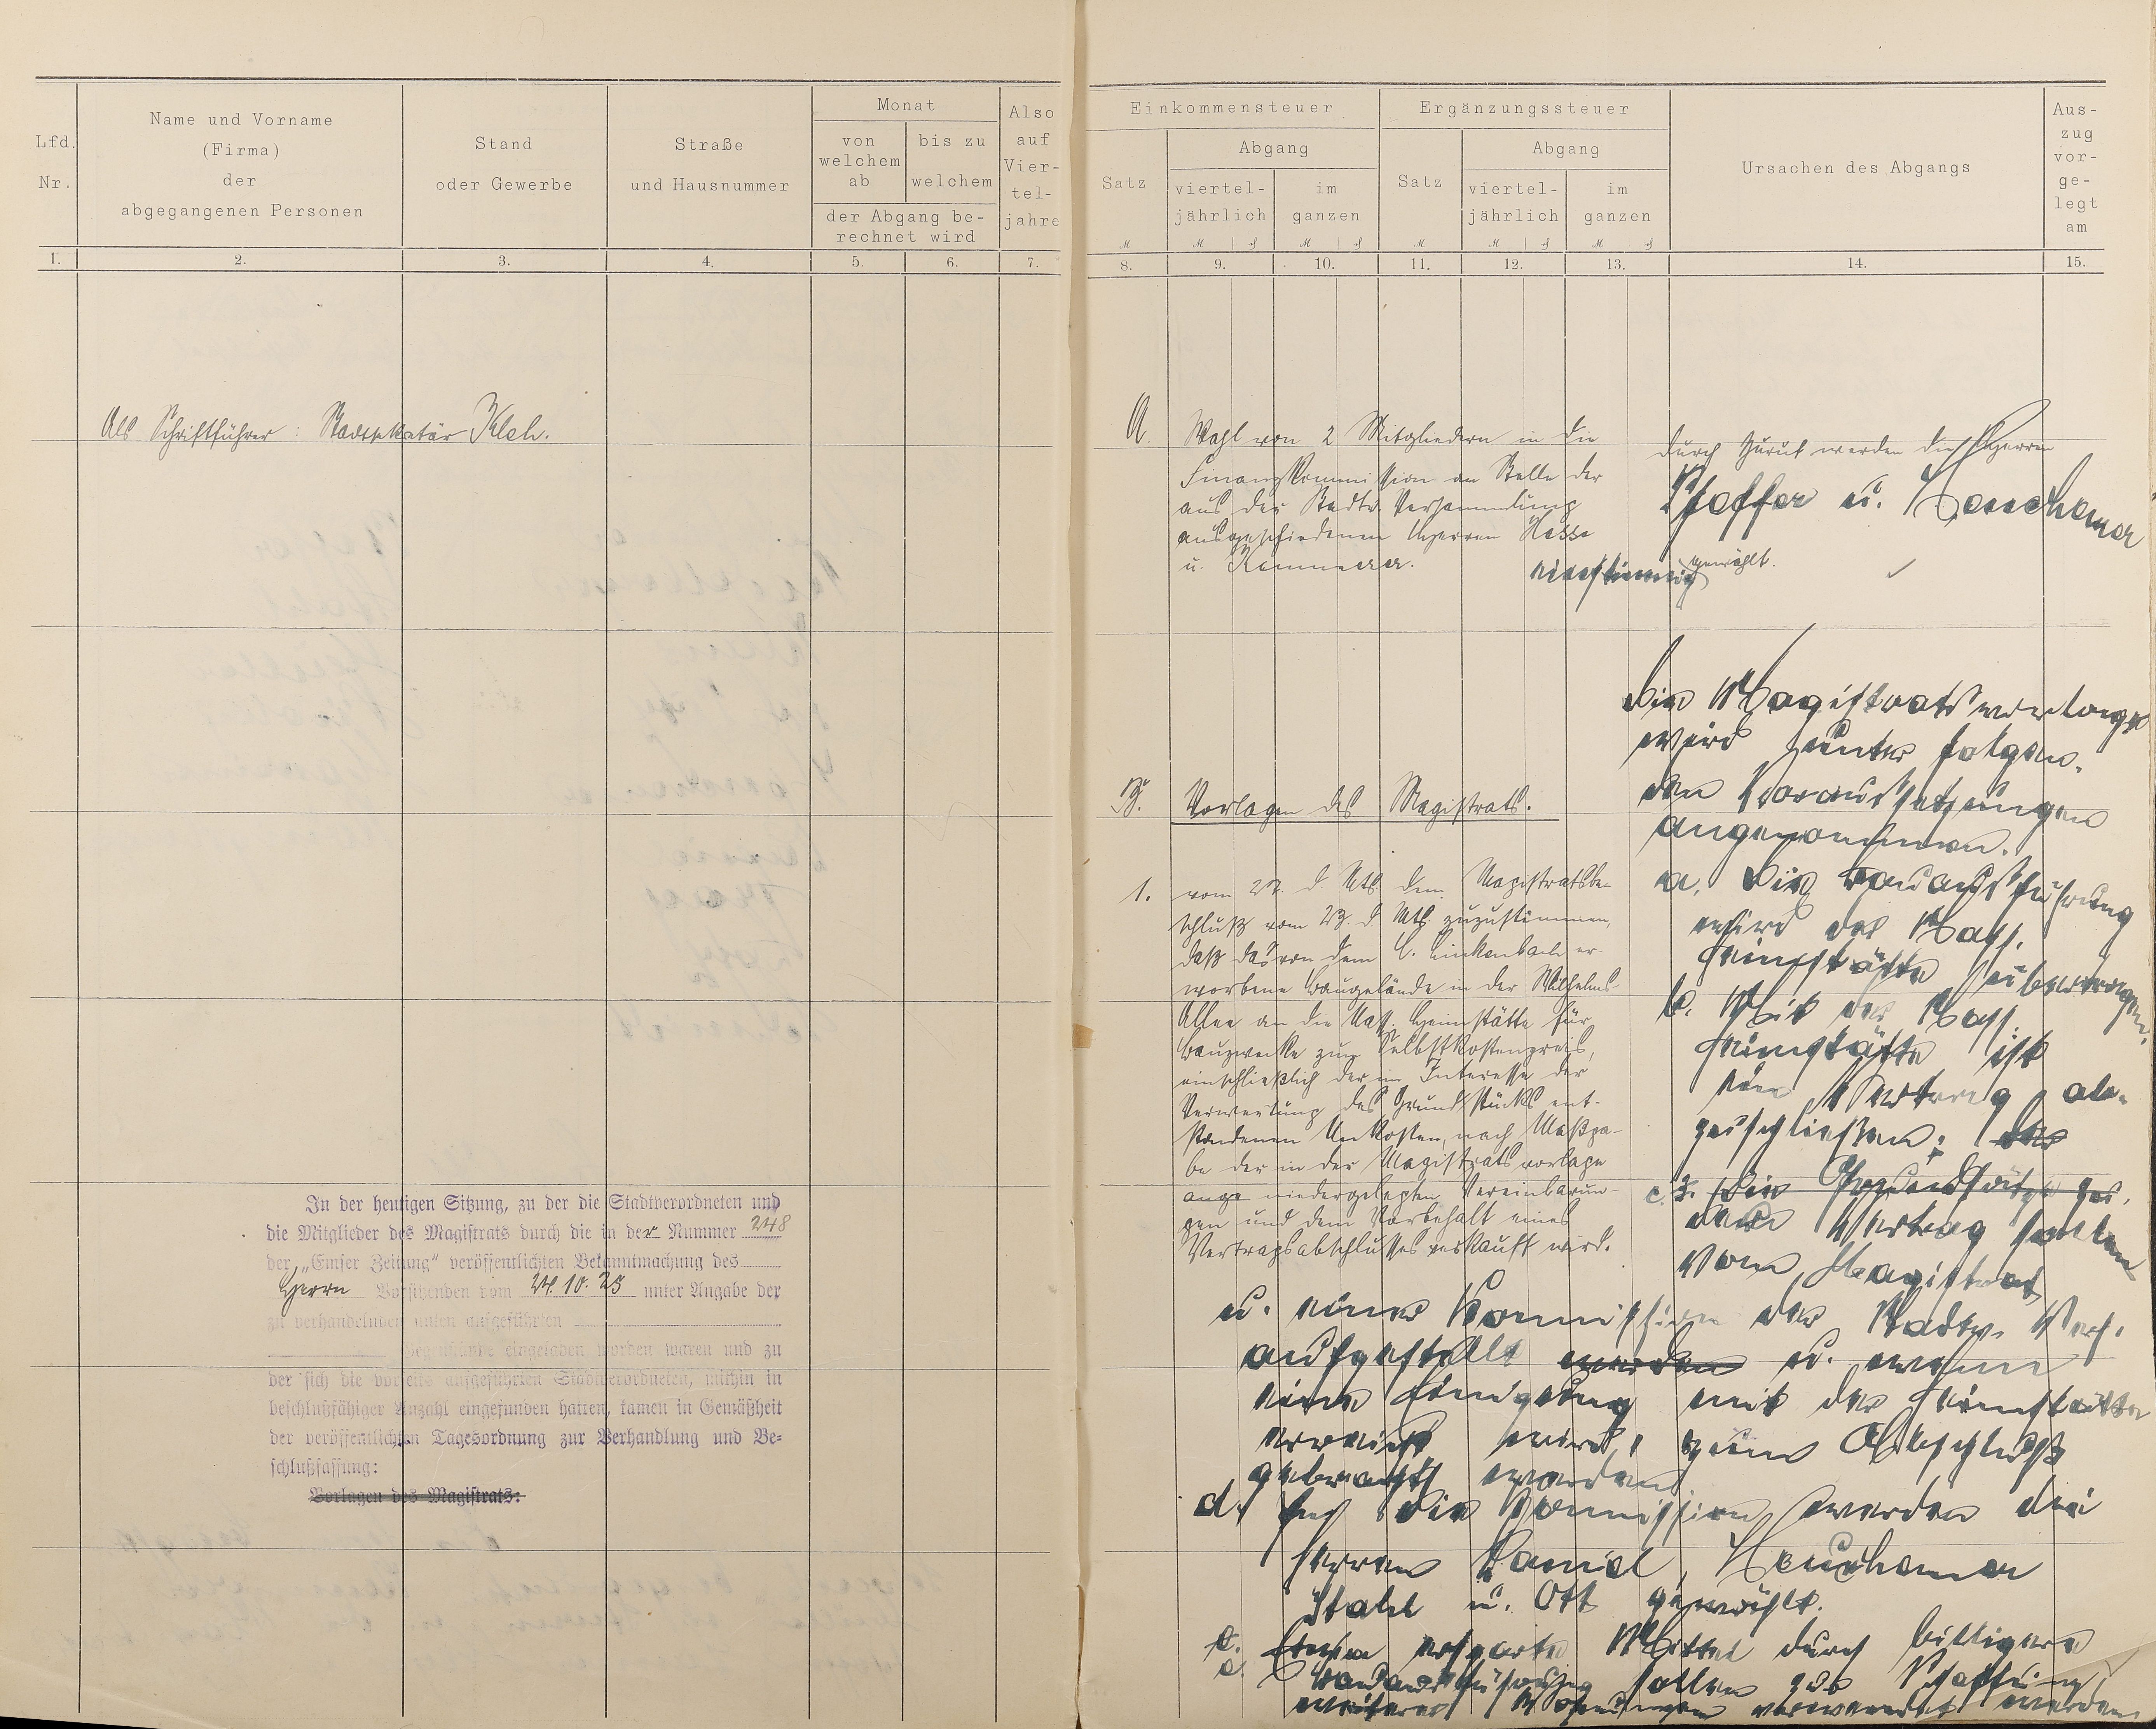 Lfd. Nr.
Name und Vorname
(Firma)
der
abgegangenen Personen
Stand
oder Gewerbe
Straße
und Hausnummer
Monat
von welchem ab
bis zu welchem
der Abgang be-
rechnet wird
Also auf Vier-tel-jahre
1. 2. 3. 4. 5. 6. 7.
Als Schriftführer: Stadtsekretär Kleh.
In der heutigen Sitzung, zu der die Stadtverordneten und
die Mitglieder des Magistrats durch die in der Nummer 248
der „Emser Zeitung“ veröffentlichten Bekanntmachung des
Herrn Vorsitzenden vom 24.10.25 unter Angabe der
zu verhandelnden unten aufgeführten
Gegenstände eingeladen worden waren und zu
der sich die vorseits aufgeführten Stadtverordneten, mithin in
beschlußfähiger Anzahl eingefunden hatten, kamen in Gemäßheit
der veröffentlichten Tagesordnung zur Verhandlung und Be-
schlußfassung:
Vorlagen des Magistrats:
Einkommensteuer
Ergänzungssteuer
Satz
Abgang
viertel-
jährlich
im
ganzen
Satz
Abgang
viertel-
jährlich
im
ganzen
Ursachen des Abgangs
Aus-
zug
vor-
ge-
legt
am
M M ₰ M ₰ M M ₰ M ₰
8. 9. 10. 11. 12. 13. 14. 15.
A. Wahl von 2 Mitgliedern in die
Finanzkommission an Stelle der
aus der Stadtv. Versammlung
ausgeschiedenen Herren Hasse
u. Kammerer.
Durch Zuruf werden die Herren
Pfeffer u. Heuchemer
einstimmig gewählt.
B. Vorlagen des Magistrats.
1. vom 27. d. Mts. dem Magistratsbe-
schluß vom 23. d. Mts. zuzustimmen,
daß das von dem C. Linkenbach er-
worbene Baugelände in der Wilhelms-
Allee an die Nass. Heimstätte für
Bauzwecke zum Selbstkostenpreis,
einschließlich der im Interesse der
Verwertung des Grundstücks ent-
standenen Unkosten, nach Maßga-
be der in der Magistratsvorlage
ange niedergelegten Vereinbarun-
gen und dem Vorbehalt eines
Vertragsabschlusses verkauft wird.
Die Magistratsvorlage
wird unter folgen-
den Voraussetzungen
angenommen.
a. Die Bauausführung
wird der Nass.
Heimstätte übertragen.
b. Mit der Nass.
Heimstätte ist
ein Vertrag ab-
zuschließen; der
c. Die Grundsätze zu
dem Vertrag sollen
vom Magistrat
u. einer Kommission der Stadtv. Vers.
aufgestellt werden u. wenn
eine Einigung mit der Heimstätte
erreicht wird, zum Abschluß
gebracht werden
d. In die Kommission werden die
Herren Daniel, Heuchemer
Stahl u. Ott gewählt.
e. Etwa ersparte Mittel durch billigere
Bauausführung sollen zur Schaffung
weiterer Wohnungen verwendet werden